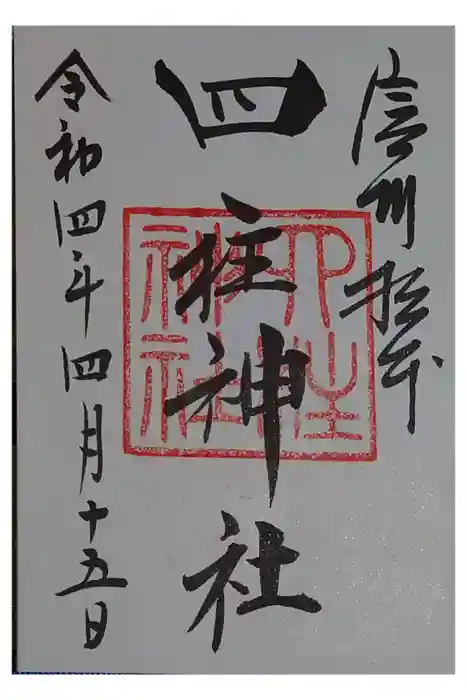 信州松本
四柱神社
四柱神社
令和四年四月十五日